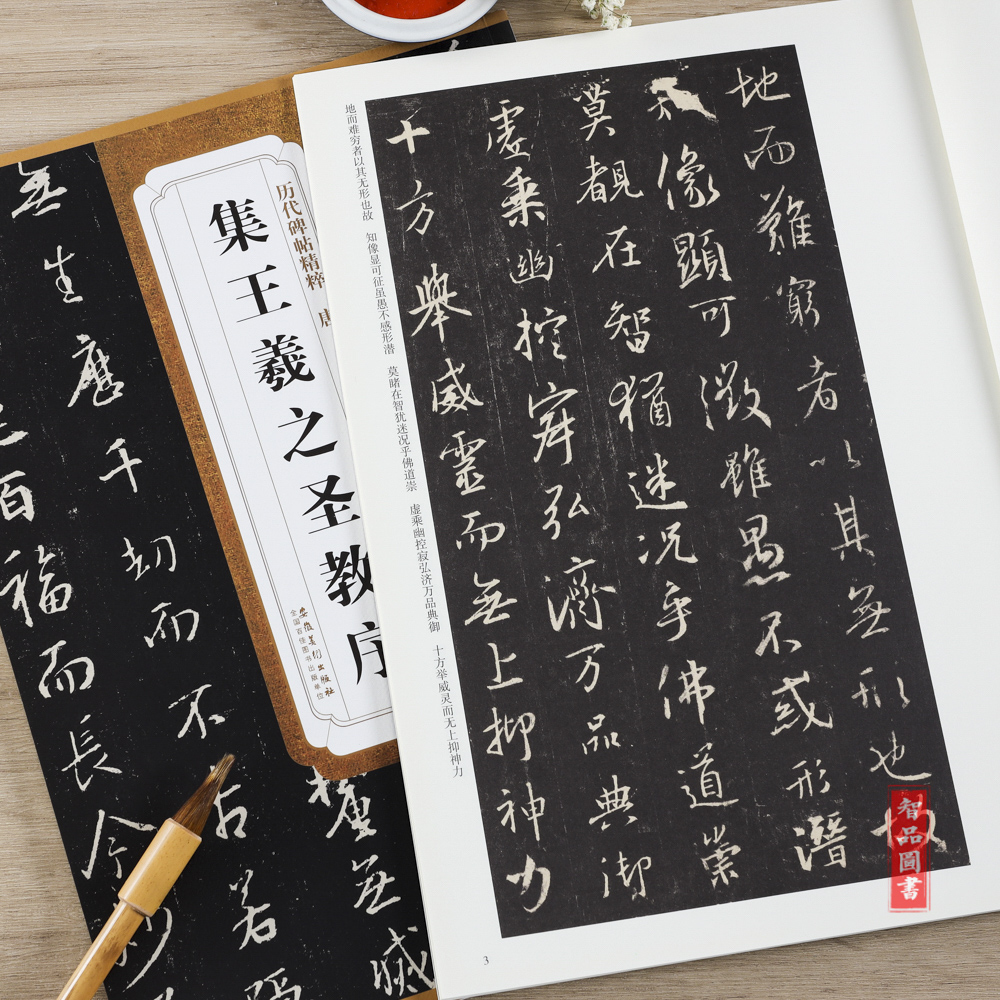 地而難窮者以其無形也故
像顯可徵雖愚不惑形潛
莫覩在智猶迷況乎佛道崇
虛乘幽控寂弘濟万品典御
十方舉威靈而無上抑神力
地而难穷者以其无形也故 知像显可征虽愚不惑形潜 莫睹在智犹迷况乎佛道崇 虚乘幽控寂弘济万品典御 十方举威灵而无上抑神力
3
智品圖書
历代碑帖精粹 唐
集王羲之圣教序
安徽美术出版社
全国百佳图书出版单位
無滅
無生歷千劫而不古若隱
百福而長今妙